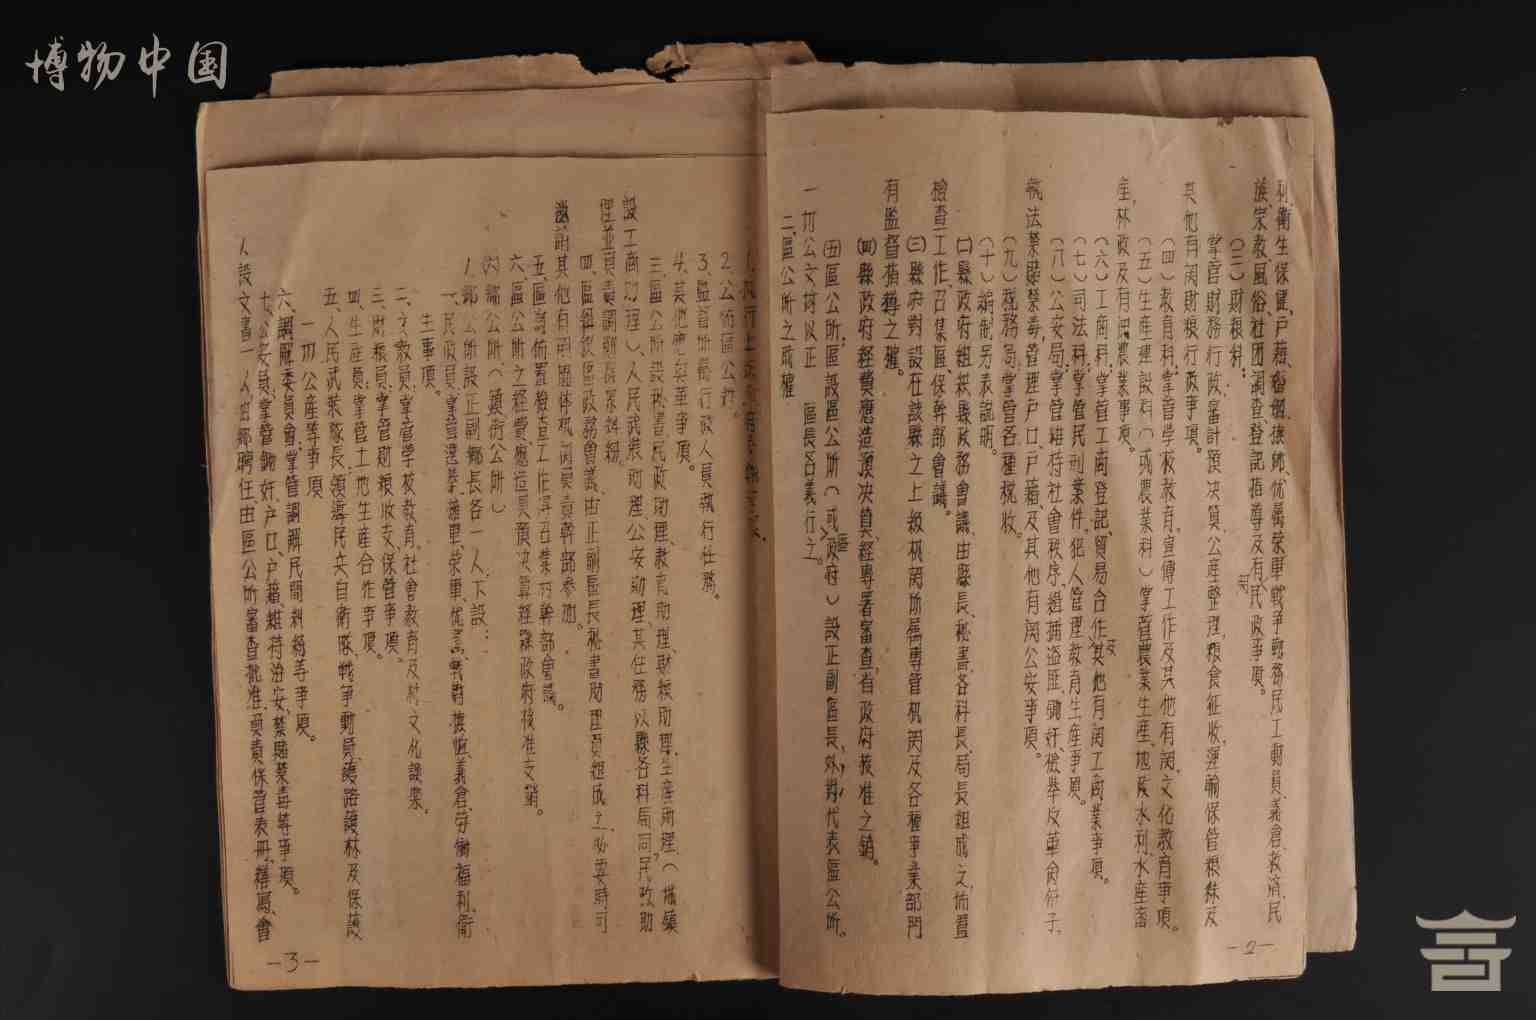 博物中国
利、衛生保健、户藉、婚姻、撫卹、优属荣軍戰爭勤務民工動員、義倉救濟、民
族、宗教、風俗、社团調查、登記指導及有関民政事項。
(三)財粮科:
掌管財務行政、審計預决算、公產整理、粮食征收、運輸保管粮秣及
其他有関財粮行政事項。
(四)教育科:掌管学校教育、宣傳工作及其他有関文化教育事項。
(五)生産建設科(或農業科)掌管農業生產、地政水利、水産畜
產、林政及有関農業事項。
(六)工商科:掌管工商登記、貿易合作及其他有関工商業事項。
(七)司法科:掌管民刑案件、犯人管理教育生産事項。
(八)公安局:掌管維持社會秩序、緝捕盗匪、鋤奸、檢舉反革命份子、
執法禁賭禁毒、管理户口、户藉、及其他有関公安事項。
(九)税務局掌管各種税收。
(十)編制另表說明。
㈡縣政府組织縣政務會議、由縣長、秘書、各科長、局長組成之、佈置
檢查工作、召集區、保幹部會議。
㈢縣府對設在該縣之上級机関所属專管机関及各種事業部門
有監督指導之權。
㈣縣政府經費應造預决算、經專署審查、省政府核准之銷。
㈤區公所:區設區公所(或區政府)設正副區長、外對代表區公所。
一切公文均以正 區長名義行之。
二、區公所之成權
-2-
2、公佈區公約。
3、監督所属行政人員執行任務。
4、其他應興革事項。
三、區公所設秘書、民政助理、教育助理、財粮助理、生產助理、(城鎮
設工商助理)、人民武裝助理、公安助理、其任務以縣各科局同、民政助
理並負責調解民眾糾紛。
四、區組织區政務會議、由正副區長、秘書、助理員組成之、必要時可
邀請其他有関團体机関負責幹部參加。
五、區討佈置檢查工作得召集村幹部會議。
六、區公所之經費、應造具預决算經縣政府核准支銷。
㈥鄉公所(鎮街公所)
1、鄉公所設正副鄉長各一人、下設:
一、民政員:掌管選舉、擁軍、荣軍、优属、戰勤、撫恤、義倉、劳働福利、衛
生事項。
二、文教員:掌管学校教育、社會教育及村文化課業。
三、財粮員:掌管財粮收支、保管事項。
四、生產員:掌管土地生産合作事項。
五、人民武裝隊長:領導民兵自衛隊、戰爭動員、護路護林及保護
一切公産等事項
六、調解委員會:掌管調解民間糾紛等事項。
七、公安員:掌管鋤奸、户口、户藉、維持治安、禁賭禁毒等事項。
八、設文書一人由鄉聘任、由區公所審查批准、負責保管表册、繕寫、會
-3-